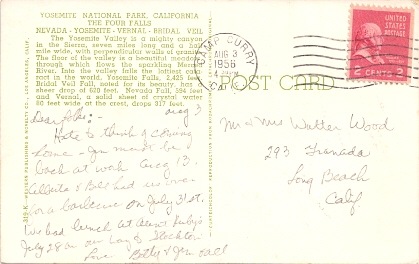 YOSEMITE NATIONAL PARK, CALIFORNIA
THE FOUR FALLS
NEVADA - YOSEMITE - VERNAL - BRIDAL VEIL
The Yosemite Valley is a mighty canyon
in the Sierra, seven miles long and a half
mile wide, with perpendicular walls of granite.
The floor of the valley is a beautiful meadow
through which flows the sparkling Merced
River. Into the valley falls the loftiest cata-
ract in the world. Yosemite Falls, 2,425 feet
Bridal Veil, noted for its beauty, has a
sheer drop of 620 feet. Nevada Fall, 594 feet
and Vernal, a solid sheet of crystal water
80 feet wide at the crest, drops 317 feet.
CAMP CURRY
AUG 3
1956
CALIF
2 CENTS 2
POST CARD
Aug 3
Dear
Hate to think of coming
home - Jim must be
back at work Aug 13.
Alberta & Bob had us over
for a barbecue on July 31st.
We had lunch at Aunt Ruby's
July 28 on our way to Stockton
Love Betty & Jim
Mr & Mrs Walter Wood
293 Granada
Long Beach
Calif.